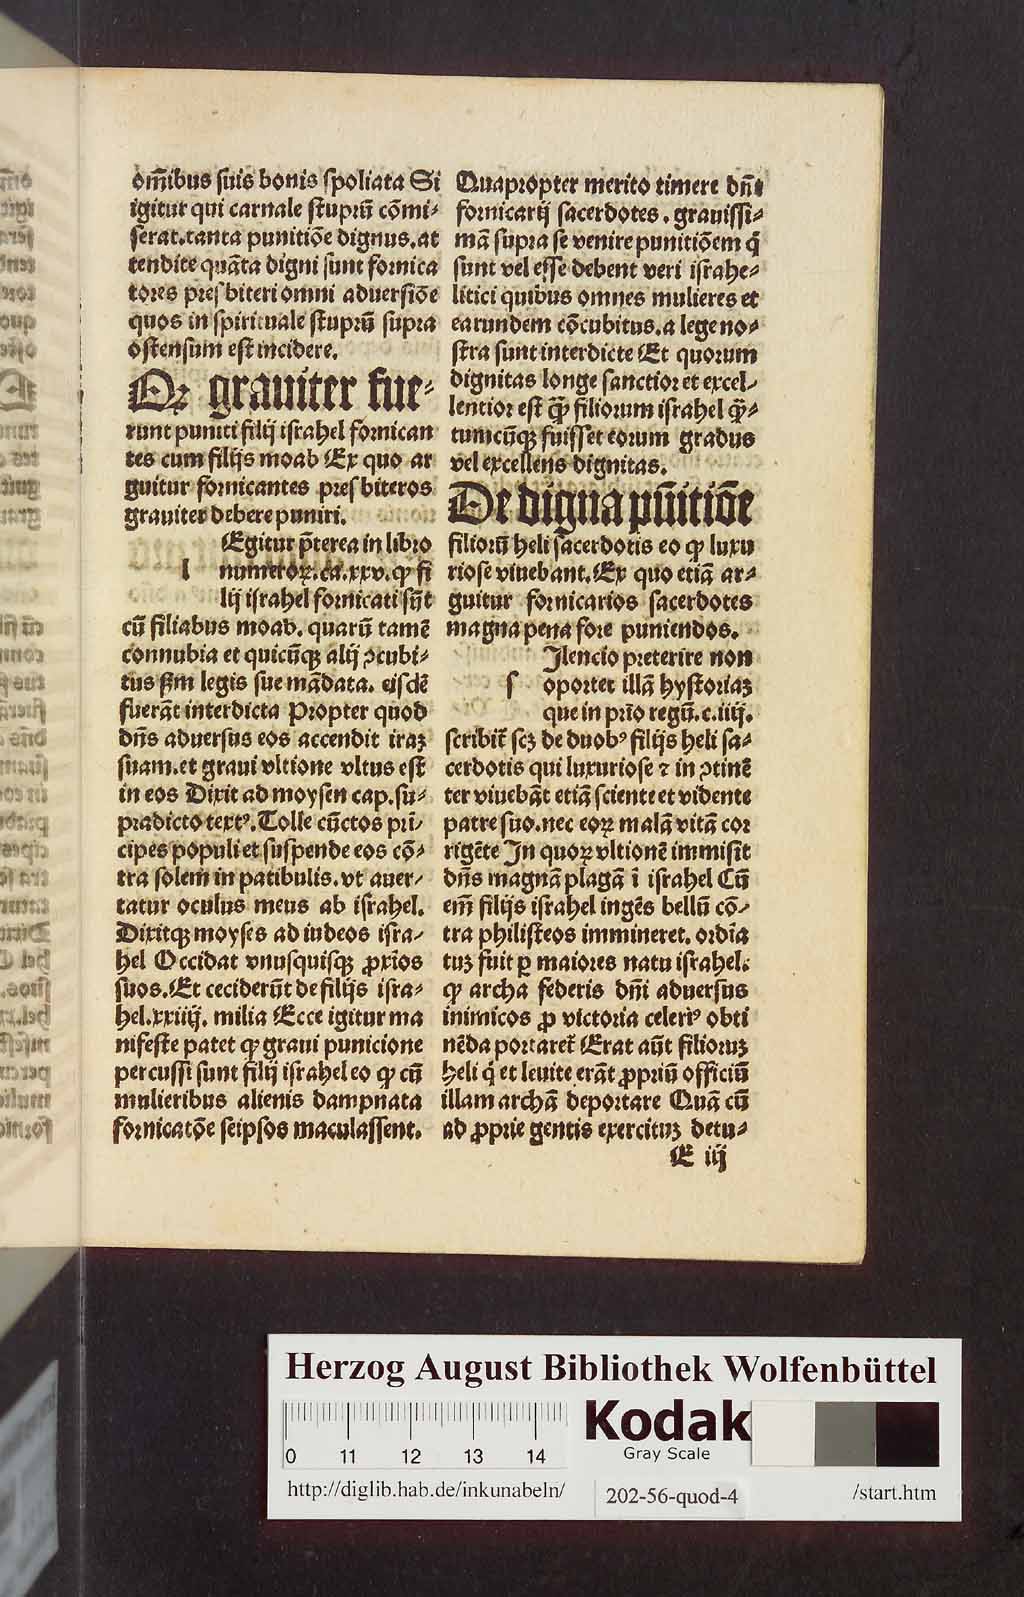 om̄ibus suis bonis spoliata Si
igitur qui carnale stuprū cōmi⸗
serat.tanta punitiōe dignus.at
tendite quāta digni sunt fornica
tores presbiteri omni aduersiōe
quos in spirituale stuprū supra
ostensum est incidere.
Qꝫ grauiter fue⸗
runt puniti filij israhel fornican
tes cum filijs moab Ex quo ar
guitur fornicantes presbiteros
grauiter debere puniri.
Egitur p̄terea in libro
l numeroꝝ.ca.xxv.ꝙ fi
lij israhel fornicati sūt
cū filiabus moab. quarū tamē
connubia et quicūqꝫ alij ꝯcubi⸗
tus ẜm legis sue mādata. eisdē
fuerāt interdicta Propter quod
dn̄s aduersus eos accendit iraꝫ
suam.et graui vltione vltus est
in eos Dixit ad moysen cap.su⸗
pradicto textꝰ.Tolle cūctos prī⸗
cipes populi et suspende eos cō⸗
tra solem in patibulis.vt auer⸗
tatur oculus meus ab israhel.
Dixitqꝫ moyses ad iudeos isra⸗
hel Occidat vnusquisqꝫ ꝓxios
suos.Et ceciderūt de filijs isra⸗
hel.xxiiij. milia Ecce igitur ma
nifeste patet ꝙ graui punicione
percussi sunt filij israhel eo ꝙ cū
mulieribus alienis dampnata
fornicatōe seipsos maculassent.
Quapropter merito timere dn̄t
fornicarij sacerdotes. grauissi⸗
mā supra se venire punitiōem q̇
sunt vel esse debent veri israhe⸗
litici quibus omnes mulieres et
earundem cōcubitus.a lege no⸗
stra sunt interdicte Et quorum
dignitas longe sanctior et excel⸗
lentior est ꝙ̄ filiorum israhel ꝙ̄⸗
tumcūqꝫ fuisset eorum gradus
vel excellens dignitas.
De digna pūitiōe
filiorū heli sacerdotis eo ꝙ luxu
riose viuebant.Ex quo etiā ar⸗
guitur fornicarios sacerdotes
magna pena fore puniendos.
Ilencio preterire non
s oportet illā hystoriaꝫ
que in prīo regū.c.iiij.
scribit̄ scꝫ de duobꝰ filijs heli sa⸗
cerdotis qui luxuriose ⁊ in ꝯtinē
ter viuebāt etiā sciente et vidente
patre suo.nec eoꝝ malā vitā cor
rigēte In quoꝝ vltionē immisit
dn̄s magnā plagā ī israhel Cū
em̄ filijs israhel ingēs bellū cō⸗
tra philisteos immineret. ordīa
tuꝫ fuit ꝑ maiores natu israhel.
ꝙ archa federis dn̄i aduersus
inimicos ꝓ victoria celeriꝰ obti
nēda portaret̄ Erat aūt filioruꝫ
heli q̇ et leuite erāt ꝓpriū officiū
illam archā deportare Quā cū
ad ꝓprie gentis exercituꝫ detu⸗
E iij
Herzog August Bibliothek Wolfenbüttel
0 11 12 13 14
Kodak
Gray Scale
http://diglib.hab.de/inkunabeln/
202-56-quod-4
/start.htm